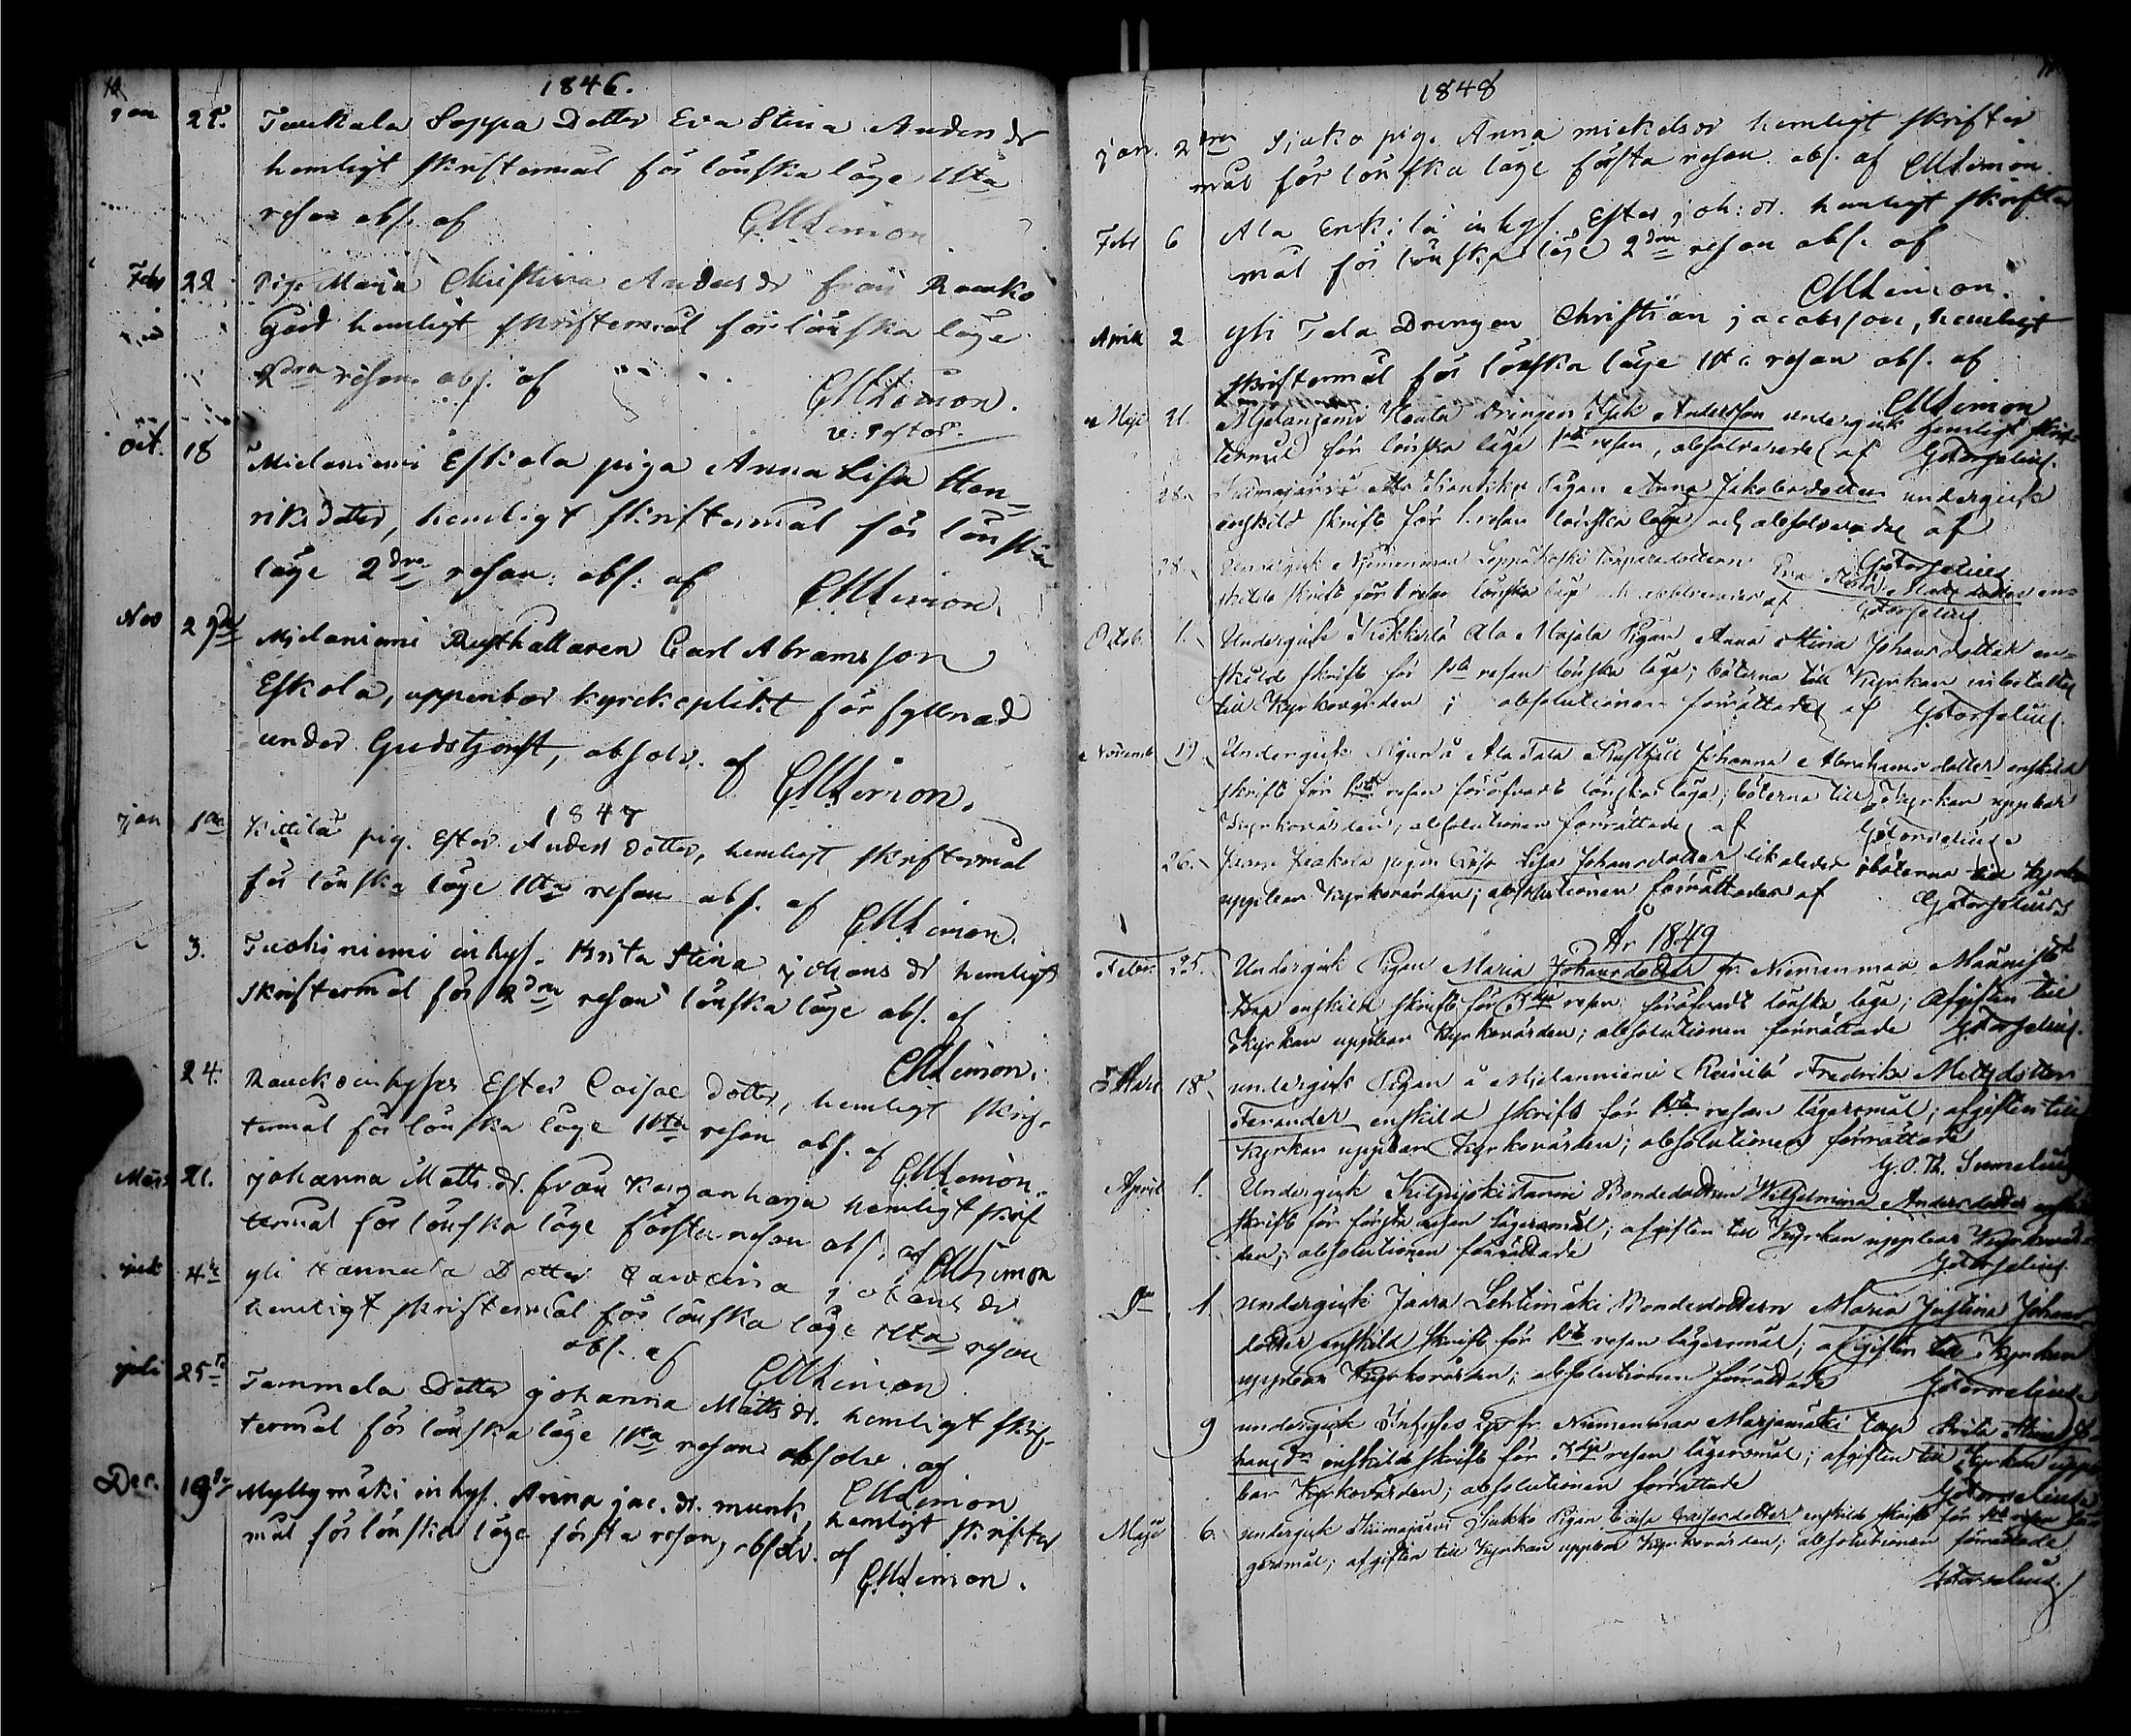 10
1846.
Jan 25. Taukala Seppä Dotter Eva Stina Anders dr
hemligt skriftermål för lönska läge 1sta
resan abs. af CMLimon
Febr 22 Pig. Maria Christina Anders dr från Rauko
Gård hemligt skriftermål för lönska läge
2dra resan abs. af CMLimon.
v: Pastor.
Oct. 18 Mielaniemi Eskola piga Anna Lisa Hen-
riksdotter, hemligt skriftermål för lönska
läge 2dra resan abs: af CMLimon.
Nov 29de Mjelaniemi Rusthållaren Carl Abramsson
Eskola, uppenbar kyrckoplikt för fyllnad
under Gudstjenst, absolv. af CMLimon.
1847
Jan 1a Kittilä pig. Ester Anders dotter, hemligt skriftermål
för lönska läge 1sta resan abs. af CMLimon.
3. Tuokiniemi inhys. Brita Stina Johans dr hemligt
skriftermål för 2dra resan lönska läge abs. af
CMLimon.
24. Raucko inhyses Ester Caisae dotter, hemligt skrif-
termål för lönska läge 1sta resan abs. af
CMLimon.
Mars 21. Johanna Matts dr. från Karjanharja hemligt skrif
termål för lönska läge första resan abs. af CMLimon
4de yli Hannula Dotter Johans dr
hemligt skriftermål för lönska läge 1sta resan
abs. af CMLimon
juli 25te Tammela Dotter Johanna Matts dr. hemligt skrif-
termål för lönska läge 1sta resan absolv. af
CMLimon
Dec. 19de Myllymäki inhys. Anna Jac. dr. Munk, hemligt skrifter
mål för lönska läge första resan, absolv. af
CMLimon.
11
1848
jan. 2dra Sjako pig. Anna Mickels dr hemligt skrifter
mål för lönska läge första resan abs. af CMLimon.
Febr 6 Ala Erkilä inhys. Ester Joh: dr. hemligt skrifter
mål för lönska läge 2dra resan abs. af
CMLimon.
April 2 yli Tala Drengen Christian Jacobsson, hemligt
skriftermål för lönska läge 1sta resan abs. af
CMLimon
Maji 21. Mjelaniemi drengen Isak Andersson undergick hemligt skrif-
termål för lönska läge 1sta resan, absolverades af GTorselius.
28. Pigan Anna Jakobsdotter undergick
enskild skrift för 1. resan lönska läge och absolverades af
GTorselius
28. Undergick Niemenmaa Leppäkoski Torparedottern Eva Maria Mattsdotter en-
skild skrift för 1 resan lönska läge och absolverades af GTorselius.
Octob. 1. Undergick Kokkola Ala Majala Pigan Anna Stina Johansdotter en-
skild skrift för 1sta resan lönska läge; böterna till Kyrkan inbetaltes
till Kyrkovärden; absolutionen förrättades af GTorselius.
Novemb 19. Undergick Pigan å Ala Tala Rusthåll Johanna Abrahamsdotter enskild
skrift för 1sta resan föröfvadt lönska läge; böterna till Kyrkan uppbar
Kyrkovärden; absolutionen förrättades af GTorselius
26. Jaakola pigan Caisa Lisa Johansdotter likaledes; böterna till Kyrkan
uppbar Kyrkovärden; absolutionen förrättades af GTorselius
År 1849
Febr. 25. Undergick Pigan Maria Johansdotter fr. Niemenmaa Männistö
torp enskild skrift för 3dje resan föröfvadt lönska läge; Afgiften till
Kyrkan uppbar Kyrkovärden; absolutionen förrättade GTorselius.
Mars 18. undergick Pigan å Mjelanniemi Fredrika Mattsdotter
Ferander enskild skrift för 1sta resan lägersmål; afgiften till
Kyrkan uppbar Kyrkovärden; absolutionen förrättade
G. O. Th. Sumelius
April 1. Undergick Bondedottern Wilhelmina Andersdotter
skrift för första resan lägersmål; afgiften till Kyrkan uppbar Kyrkovär-
den; absolutionen förrättade GTorselius.
Do 1. undergick Jaara Lehtimäki Bondedottern Maria Justina Johans
dotter enskild skrift för 1sta resan lägersmål; afgiften till Kyrkan
uppbar Kyrkovärden; absolutionen förrättade GTorselius
9 undergick Inhyses fr. Niemenmaa Marjamäki torp Brita Stina Jo-
hans dr enskild skrift för 3dje resan lägersmål; afgiften till Kyrkan upp-
bar Kyrkovärden; absolutionen förrättade GTorselius
Maji 6. undergick Sjakko Pigan Caisa Caisasdotter enskild skrift för 1sta resan lä-
gersmål; afgiften till Kyrkan uppbar Kyrkovärden; absolutionen förrättade
GTorselius.